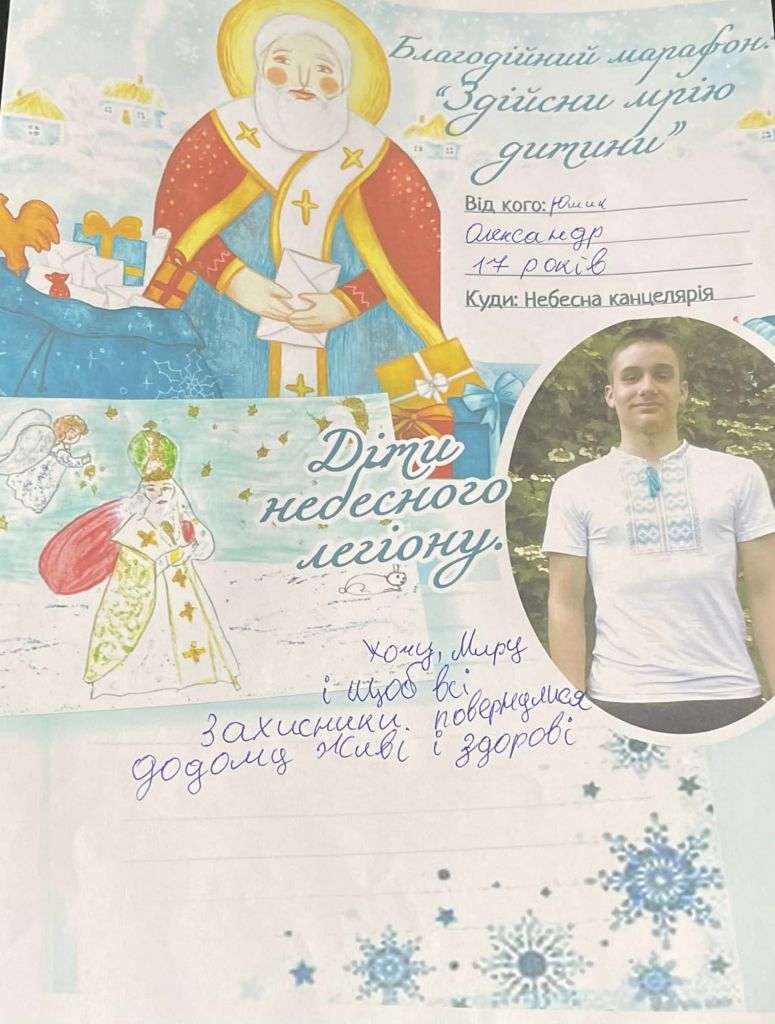 Благодійний марафон:
“Здійсни мрію
дитини”
Від кого: Юшик
Олександр
17 років
Куди: Небесна канцелярія
Діти
небесного
легіону.
Хочу, Миру
і щоб всі
Захисники. повернулися
додому живі і здорові